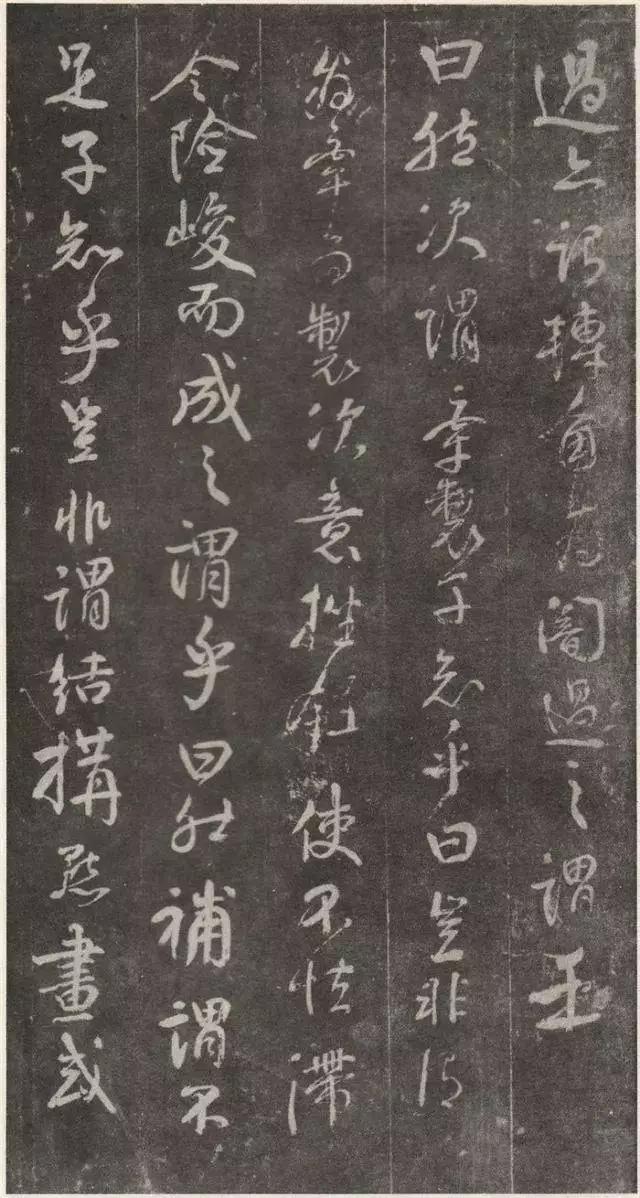 過亦謂轉角為闇過之謂乎
曰然次謂牽製子知乎曰豈非謂
牽為製次意挫鋒使不怯滯
令險峻而成之謂乎曰然補謂不
足子知乎豈非謂結構點畫或